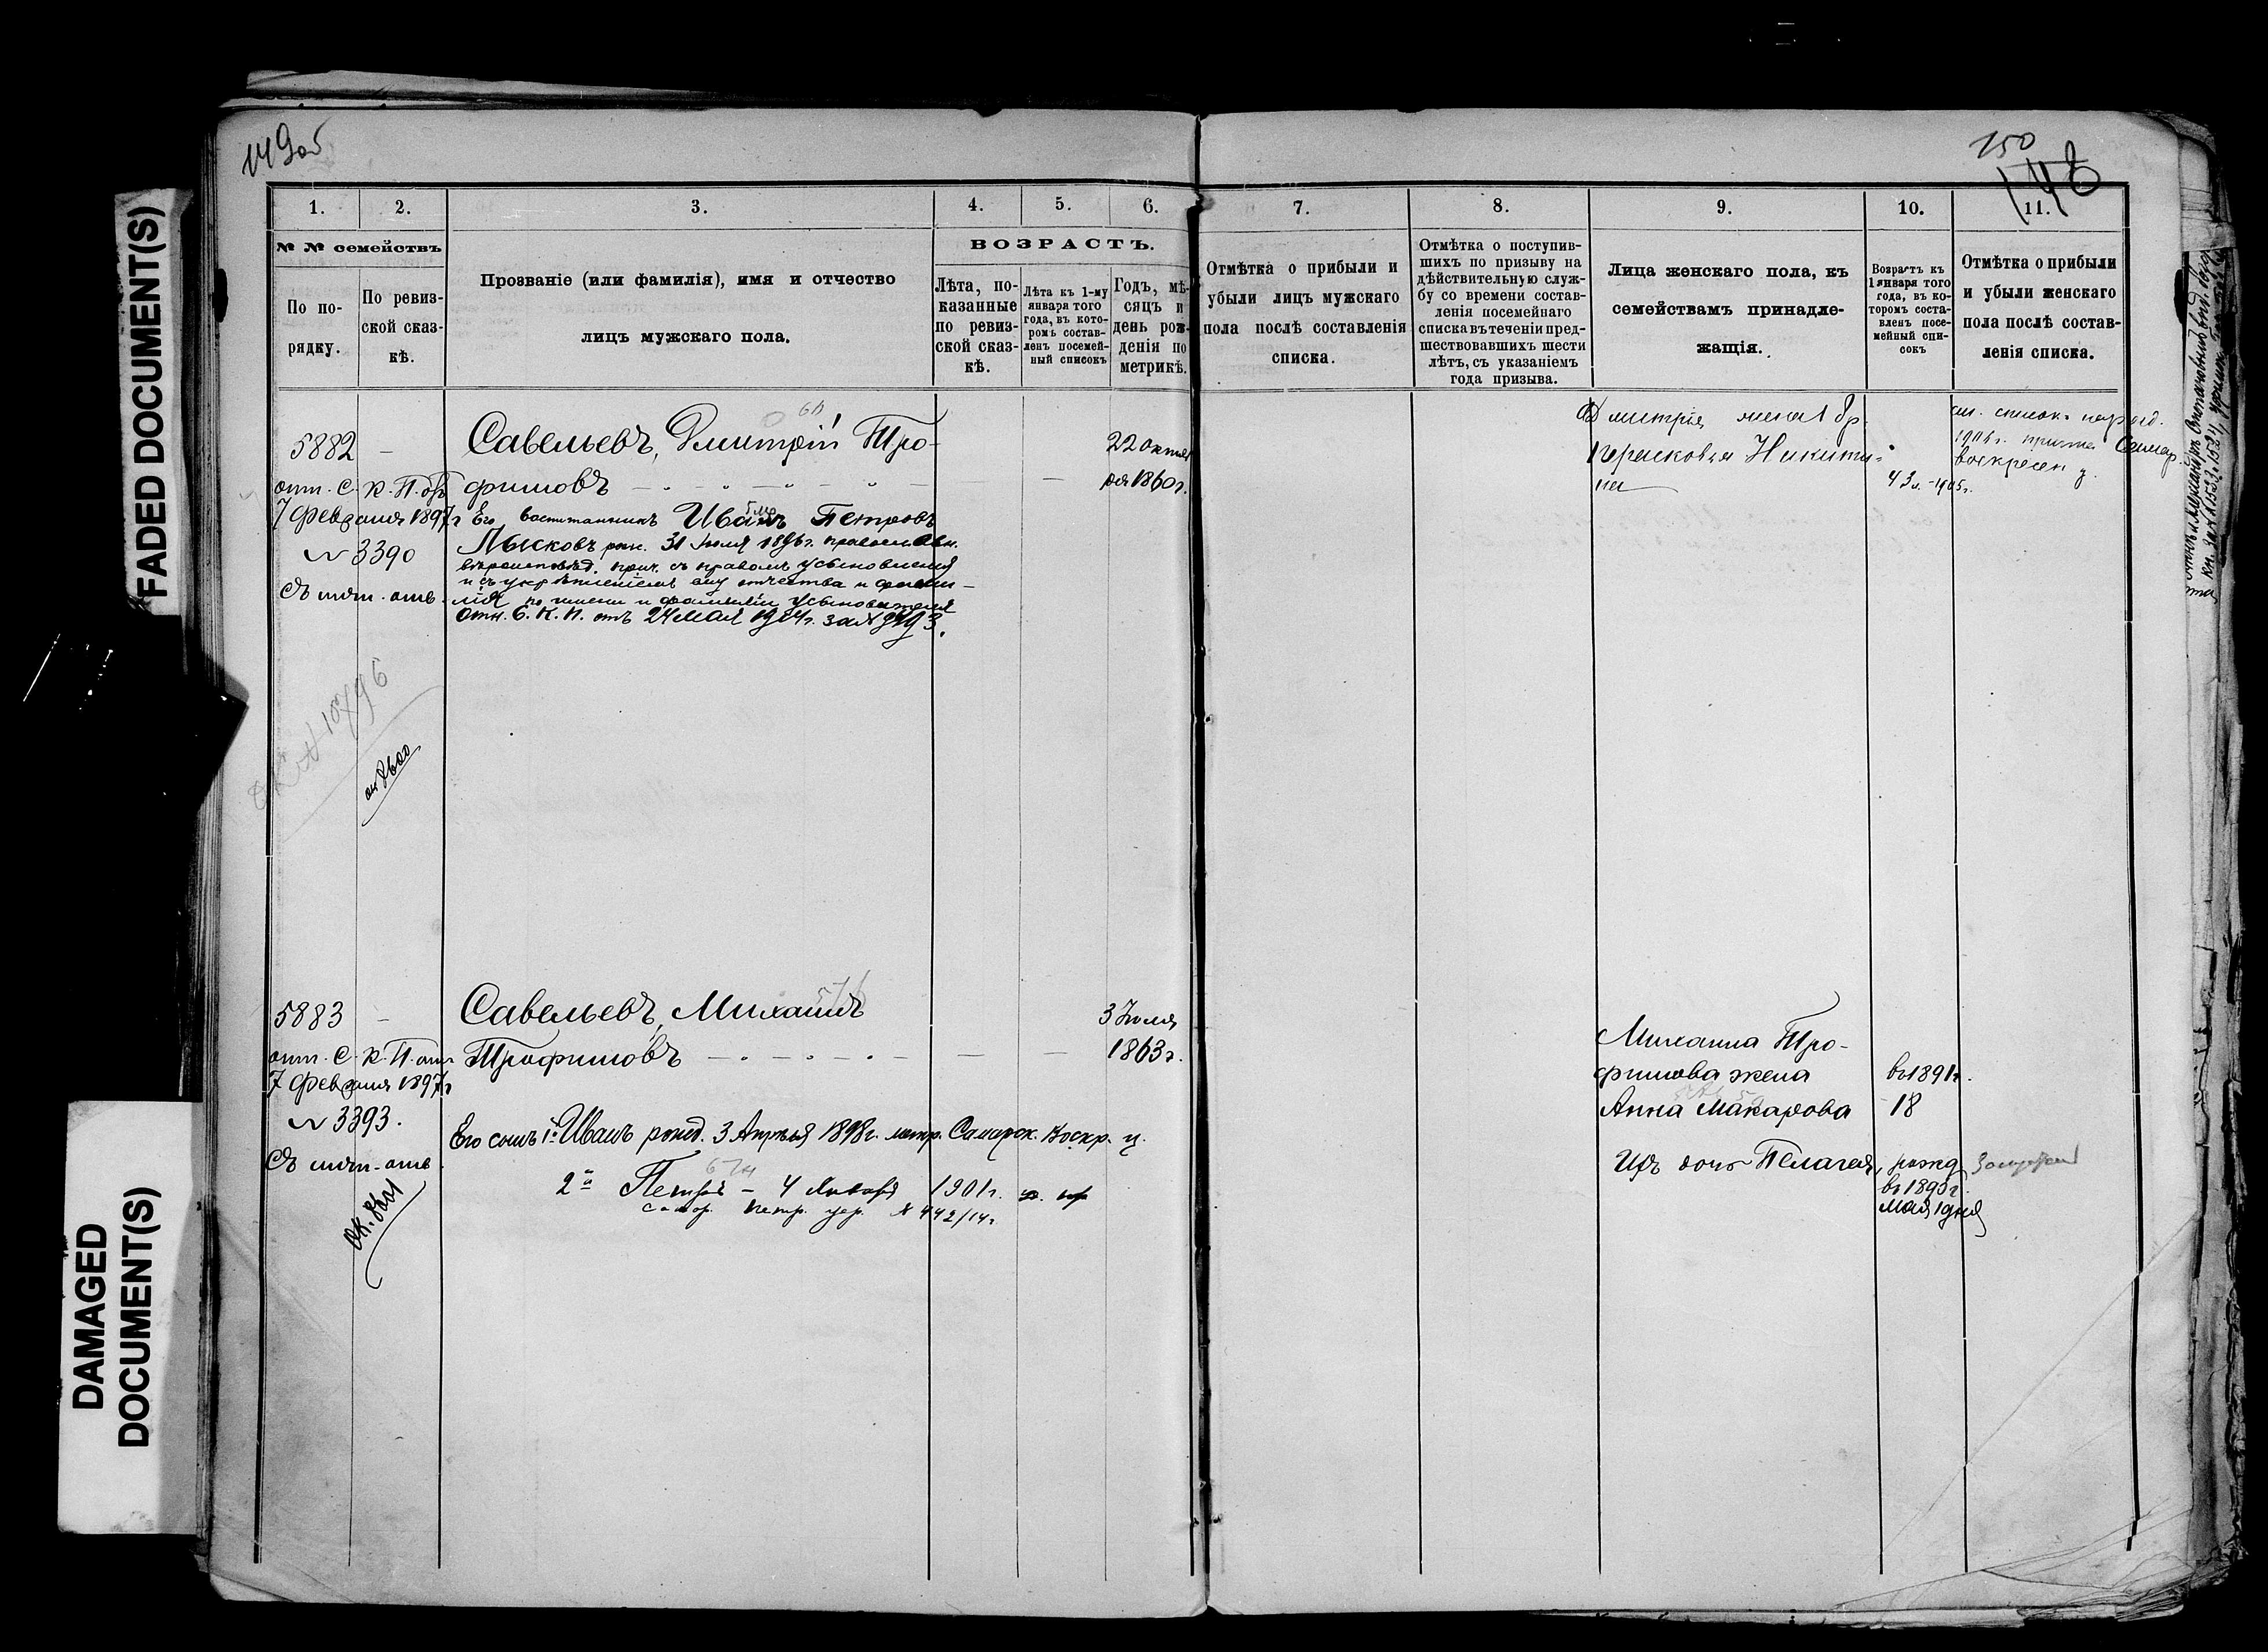 FADED DOCUMENT(S)
DAMAGED
DOCUMENT(S)
149об
150
148
1.
2.
3.
4.
5.
6.
№ № семействъ
По по-
рядку.
По ревиз-
ской сказ-
кѣ.
Прозваніе (или фамилія), имя и отчество
лицъ мужскаго пола.
ВОЗРАСТЪ.
Лѣта, по-
казанные
по ревиз-
ской сказ-
кѣ.
Лѣта къ 1-му
января того
года, въ кото-
ромъ состав-
ленъ посемей-
ный списокъ
Годъ, мѣ-
сяцъ и
день рож-
денія по
метрикѣ.
7.
8.
9.
10.
11.
Отмѣтка о прибыли и
убыли лицъ мужскаго
пола послѣ составленія
списка.
Отмѣтка о поступив-
шихъ по призыву на
дѣйствительную служ-
бу со времени состав-
ленія посемейнаго
списка въ теченіи пред-
шествовавшихъ шести
лѣтъ, съ указаніемъ
года призыва.
Лица женскаго пола, къ
семействамъ принадле-
жащія.
Возрастъ къ
1 января того
года, въ ко-
торомъ соста-
вленъ посе-
мейный спи-
сокъ
Отмѣтка о прибыли
и убыли женскаго
пола послѣ состав-
ленія списка.
5882 -
отн. С. К. П. отъ
7 февраля 1897 г
№ 3390
Съ мат. отв.
Савельевъ, Дмитрій Тро-
фимовъ
22 октяб
ря 1860 г.
Его воспитанникъ Иванъ Петровъ
Лысковъ рож. 31 Іюля 1896 г. православн.
вѣроисповѣд. прич. съ правомъ усыновленія
и съ укрѣпленіемъ ему отчества и фами-
лія по имени и фамиліи усыновителя
Отн. С. К. П. отъ 24 мая 1904 г. за №
Дмитрія жена
Прасковья Никити-
на
43 л. - 1905 г.
1906 г. Самар.
воскресен ц.
№ 10796
5883 -
отн. С. К. П. отъ
7 февраля 1897 г
№ 3393.
Съ мат. отв.
ок. 8601
Савельевъ, Михаилъ
Трофимовъ
3 Іюля
1863 г.
Его сынъ 1й Иванъ рожд. 3 Апрѣля 1898 г. метр. Самарск. Воскр. ц.
2й Петръ - 4 Января 1901 г.
Самар. Петр. цер. № 442/14 г.
Михаила Тро-
фимова жена
Анна Макарова
въ 1891 г.
18
Ихъ дочь Пелагея, рожд
въ 1895 г.
мая 1 дня